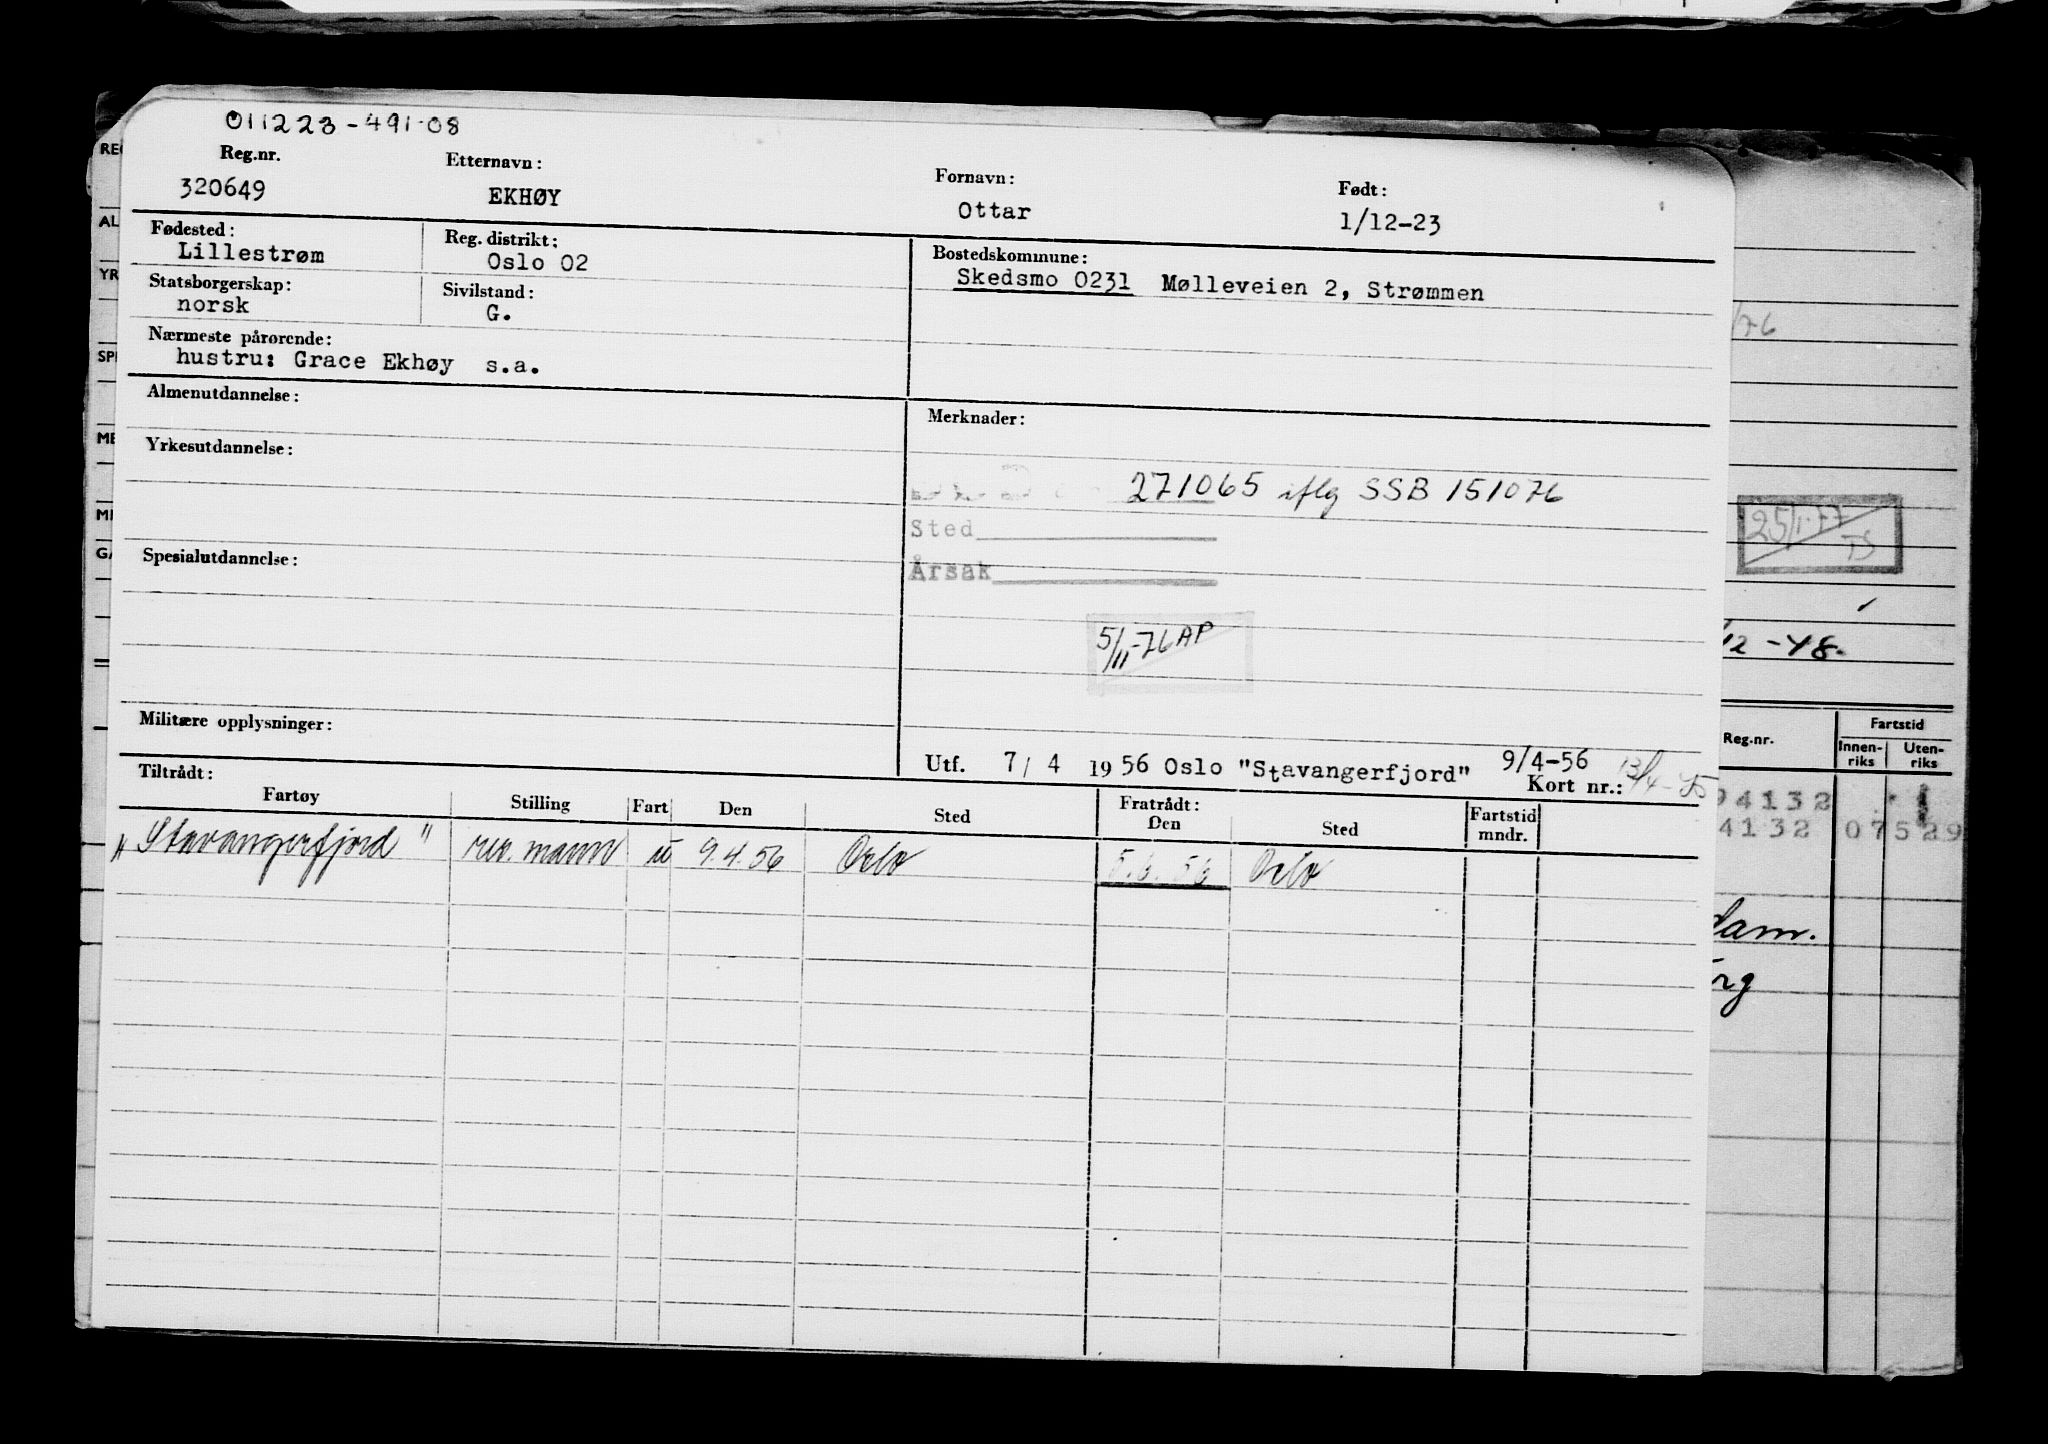 011223-491-08
Reg.nr. Etternavn: Fornavn: Født:
320649 EKHØY Ottar 1/12-23
Fødested: Reg. distrikt: Bostedskommune:
Lillestrøm Oslo 02 Skedsmo 0231 Mølleveien 2, Strømmen
Statsborgerskap: Sivilstand:
norsk G.
Nærmeste pårørende:
hustru: Grace Ekhøy s.a.
Almenutdannelse: Merknader:
Yrkesutdannelse:
271065 iflg SSB 151076
Sted
Årsak
Spesialutdannelse:
5/11-76 AP
Militære opplysninger:
Utf. 7/4 1956 Oslo "Stavangerfjord" 9/4-56
Kort nr.:
Tiltrådt: Fratrådt:
Fartøy Stilling Fart Den Sted Den Sted Fartstid mndr.
"Stavangerfjord" rev. mann u 9.4.56 Oslo 5.6.56 Oslo
REG
AL
YR
SPE
ME
MI
GA
/76
25/1-77
TS
/12-48.
Reg.nr. Fartstid
Innen-riks Uten-riks
94132
4132 07529
dam.
rg